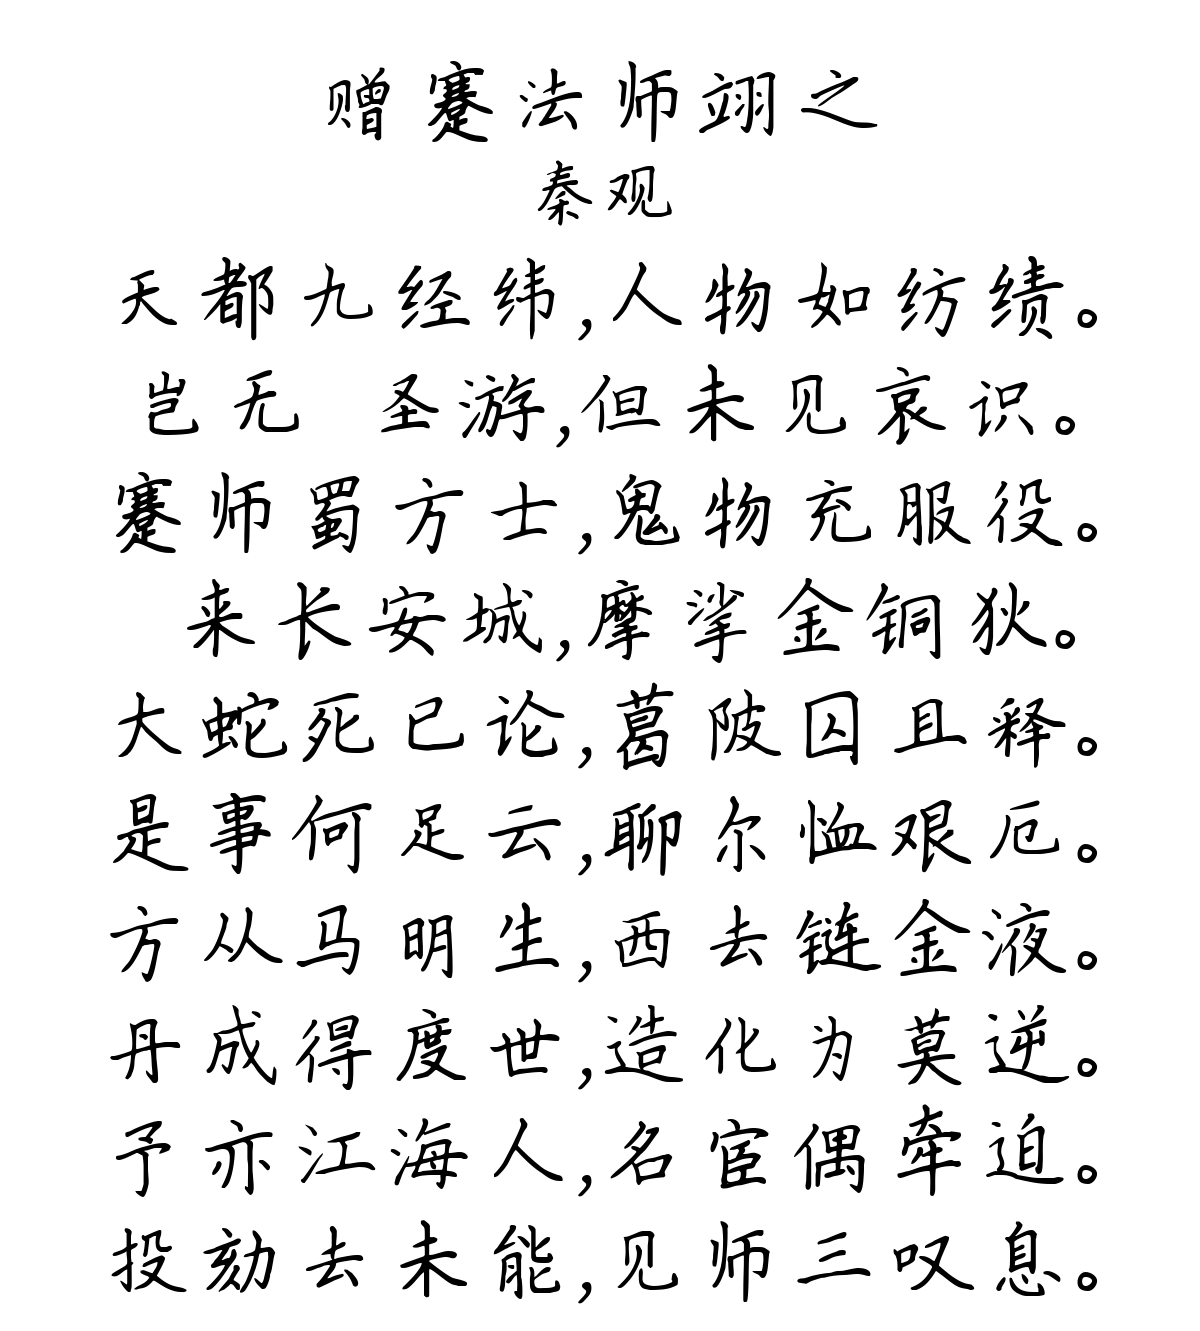 赠蹇法师翊之
秦观
天都九经纬,人物如纺绩。
岂无 圣游,但未见哀识。
蹇师蜀方士,鬼物充服役。
来长安城,摩挲金铜狄。
大蛇死已论,葛陂囚且释。
是事何足云,聊尔恤艰厄。
方从马明生,西去链金液。
丹成得度世,造化为莫逆。
予亦江海人,名宦偶牵迫。
投劾去未能,见师三叹息。